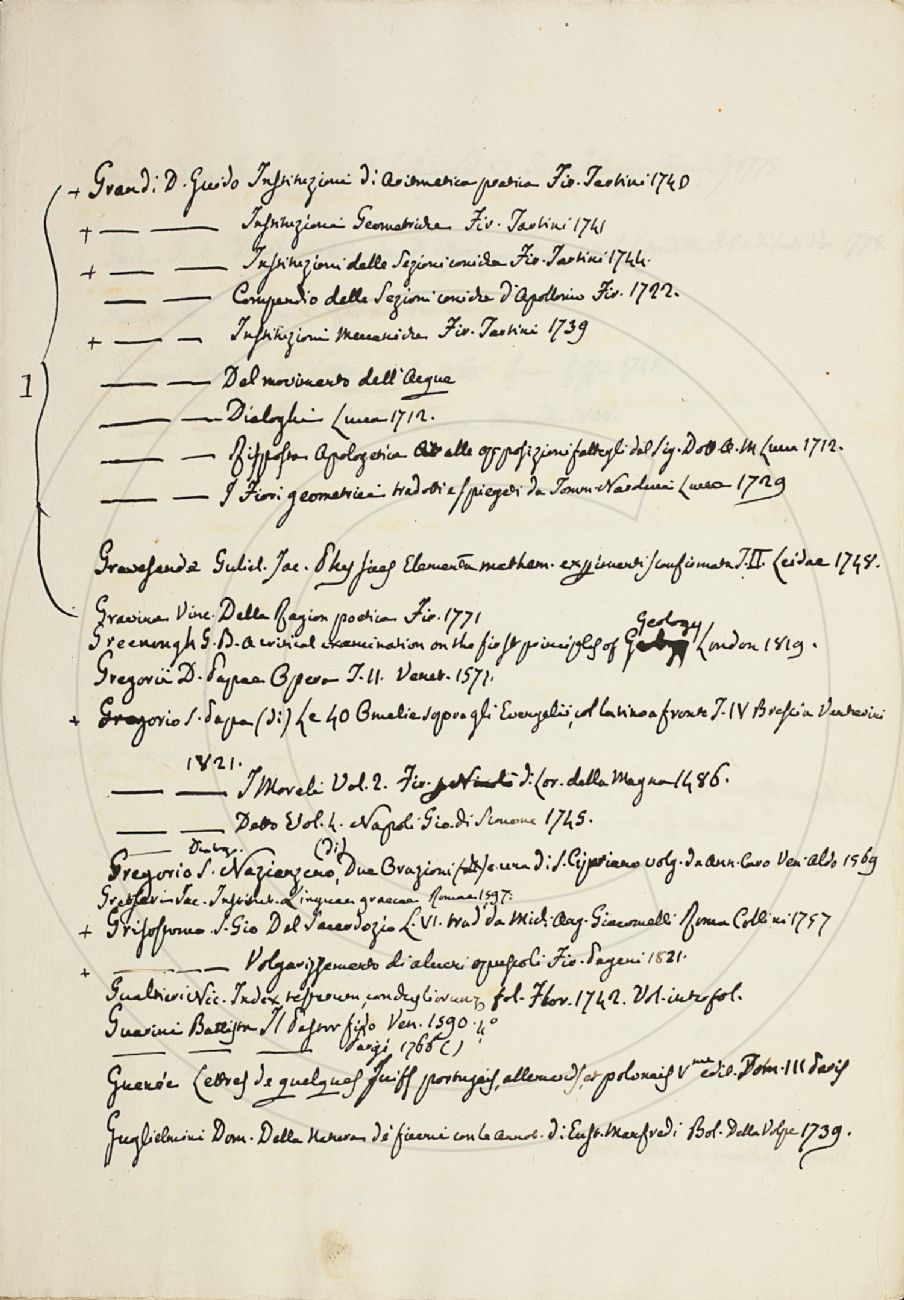 + Grandi D. Guido Instituzioni di Aritmetica pratica Fir. Tartini 1740
+ — — Instituzioni Geometriche Fir. Tartini 1741
+ — — Instituzioni delle Sezioni coniche Fir. Tartini 1744.
— — Compendio delle Sezioni coniche d'Apollonio Fir. 1722.
+ — — Instituzioni Meccaniche Fir. Tartini 1739
1 — — Del movimento dell'Acque
— — Dialoghi Lucca 1712.
— — Risposta Apologetica alle opposizioni fattegli dal Sig. Dott. A. M. Lucca 1712.
— — I Fiori geometrici tradotti e spiegati da Tomm. Narducci Lucca 1729
Gravesande Guliel. Jac. Physices Elementa mathem. experimentis confirmata T. II. Leidae 1748.
Gravina Vinc. Della Ragion poetica Fir. 1771
Geology
Greenough G. B. A critical examination on the first principles of London 1819.
Gregorii D. Papae Opera T. II. Venet. 1571.
+ Gregorio S. Papa (di) Le 40 Omelie sopra gli Evangelii, col latino a fronte T. IV Brescia Venturini
1821.
— — I Morali Vol. 2. Fir. di Lor. della Magna 1486.
— — Detto Vol. 4. Napoli Gio. di Simone 1745.
(di)
Gregorio S. Nazianzeno, Due Orazioni e una di S. Cipriano volg. da Ann. Caro Ven. Aldo 1569
Gretseri Jac. Institut. Linguae graecae Romae 1597.
+ Grisostomo S. Gio Del Sacerdozio L. VI. trad da Mich. Ang. Giacomelli Roma Collini 1757
+ — — Volgarizzamento di alcuni opuscoli Fir. Pagani 1821.
Gualtieri Nic. Index testarum, conchyliorum fol. Flor. 1742. Vol. in tro fol.
Guarini Battista Il Pastor fido Ven. 1590. 4°
— — — Parigi 1766 ( )
Guenée Lettres de quelques Juifs portugais, allemands, et polonais Vme edit. Tom. III Paris
Guglielmini Dom. Della Natura de' fiumi con le annot. di Eust. Manfredi Bol. Della Volpe 1739.